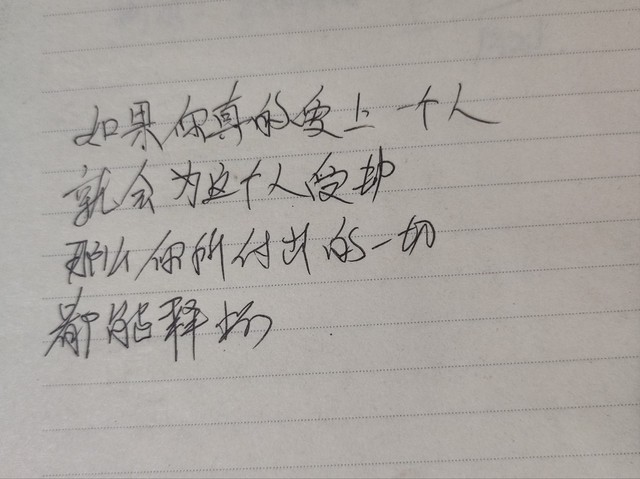 如果你真的爱上一个人
就会为这个人受劫
那么你所付出的一切
都能释怀